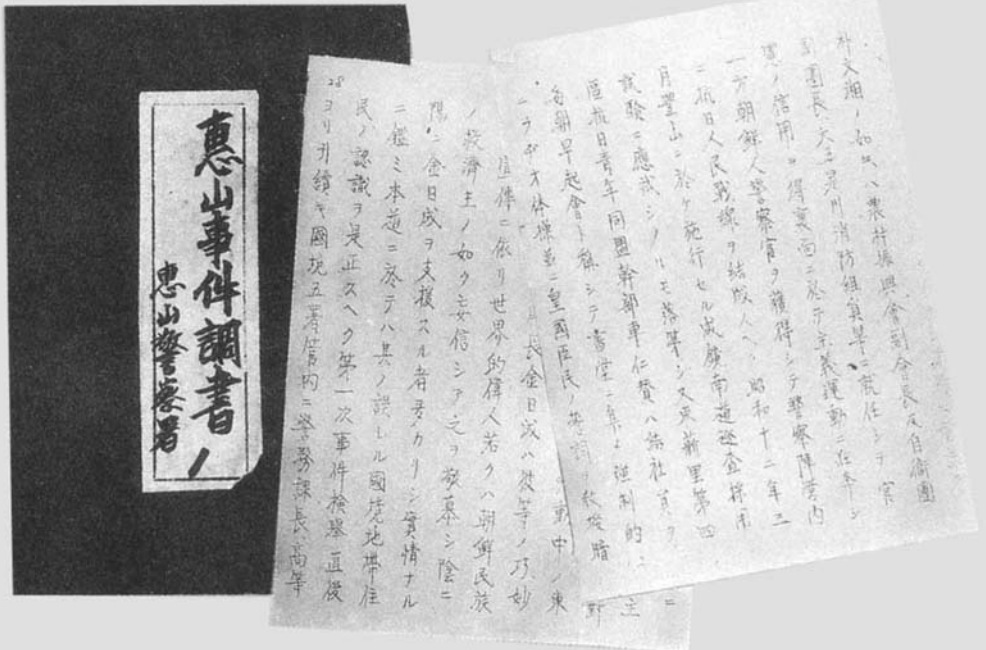 惠山事件調書ノ
惠山警察署
朴文湘ノ如キハ農村振興會副會長及自衛團
副團長、又ハ消防組員等ニ就任シテ官
憲ノ信用ヲ得裏面ニ於テ主義運動ニ在奔シ
一方朝鮮人警察官ヲ獲得シテ警察陣営内
ニ抗日人民戰線ヲ結成 昭和十二年三
月豐山ニ於ケ施行セル咸鏡南道巡査採用
試験ニ應試シ モ落第シ又東新里第四
區抗日青年同盟幹部車仁賛ハ結社員ヲ
毎朝早起會ト稱シテ書堂ニ集メ強制的ニ
ラヂオ体操並ニ皇國臣民ノ
長金日成ハ彼等ノ巧妙
宣傳ニ依リ世界的偉人若クハ朝鮮民族
ノ救濟主ノ如ク妄信シアテ之ヲ敬慕シ陰ニ
陽ニ金日成ヲ支援スル者多カリシ實情ナル
ニ鑑ミ本道ニ於テハ其ノ誤レル國境地帶住
民ノ認識ヲ是正スヘク第一次事件検擧直後
28
ヨリ引續キ國境五署管内ニ警務課長、高等